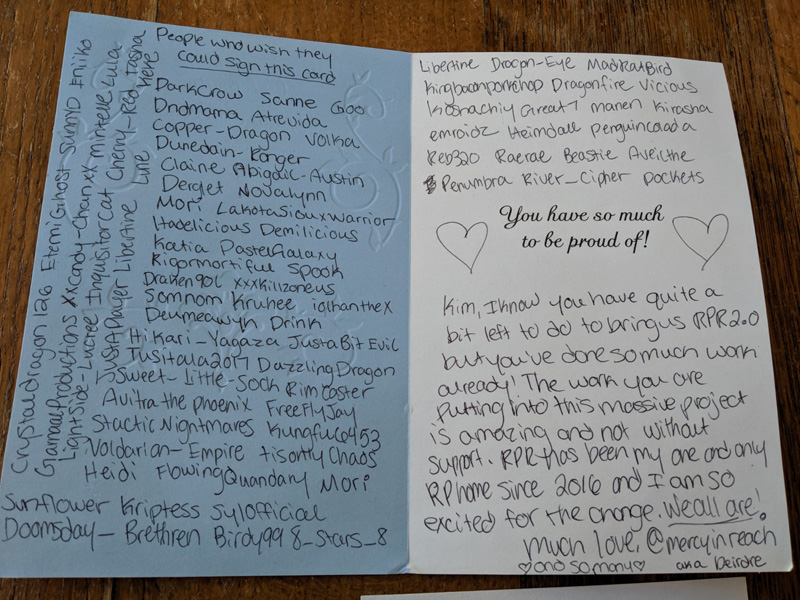 People who wish they
could sign this card
DarkCrow Sanne Goo
Dndmama Atrevida
Copper-Dragon Volka
Dunedain-Ranger
Claine Abigail-Austin
Derget Novalynn
Mori LakotaSiouxWarrior
Itsdelicious Demilicious
Katia PastelGalaxy
Rigormortiful Spook
Draken901 xxxKillzoneus
Somnom Kruhee iglhanthex
Deumeawyn Drink
Hikari-Yagaza JustaBit Evil
Tusitala2017 DazzlingDragon
Sweet-Little-Sock Rimcaster
Auitra the phoenix FreeFlyJay
Stactic Nightmares Kungfu6453
Voldarian-Empire tisortly Chaos
Heidi FlowingQuandary Mori
Sunflower Kriptess Sylofficial
Doomsday-Brethren Birdy99 8_Stars_8
Crystaldragon126 EternlGhost Sunny10 Eniiko
GlamaceProductions XxCandy-ChanxX minkeye Lula
LightSide-Lucree InquisitorCat Cherry-Red Tasha
JustAPlayer Libertine Lure Here
Libertine Dragon-Eye MadRatBird
Kingbaconporkchop Dragonfire Vicious
Koshachiy Great7 manen Kirasha
emroidz Heimdall penguincanada
Reb320 Raerae Beastie Aveilthe
Penumbra River_Cipher pockets
You have so much
to be proud of!
Kim, I know you have quite a
bit left to do to bring us RPR 2.0
but you've done so much work
already! The work you are
putting into this massive project
is amazing and not without
support. RPR has been my one and only
RP home since 2016 and I am so
excited for the change. We all are!
Much love, @mercyinreach
♡and so many♡ aka Deirdre